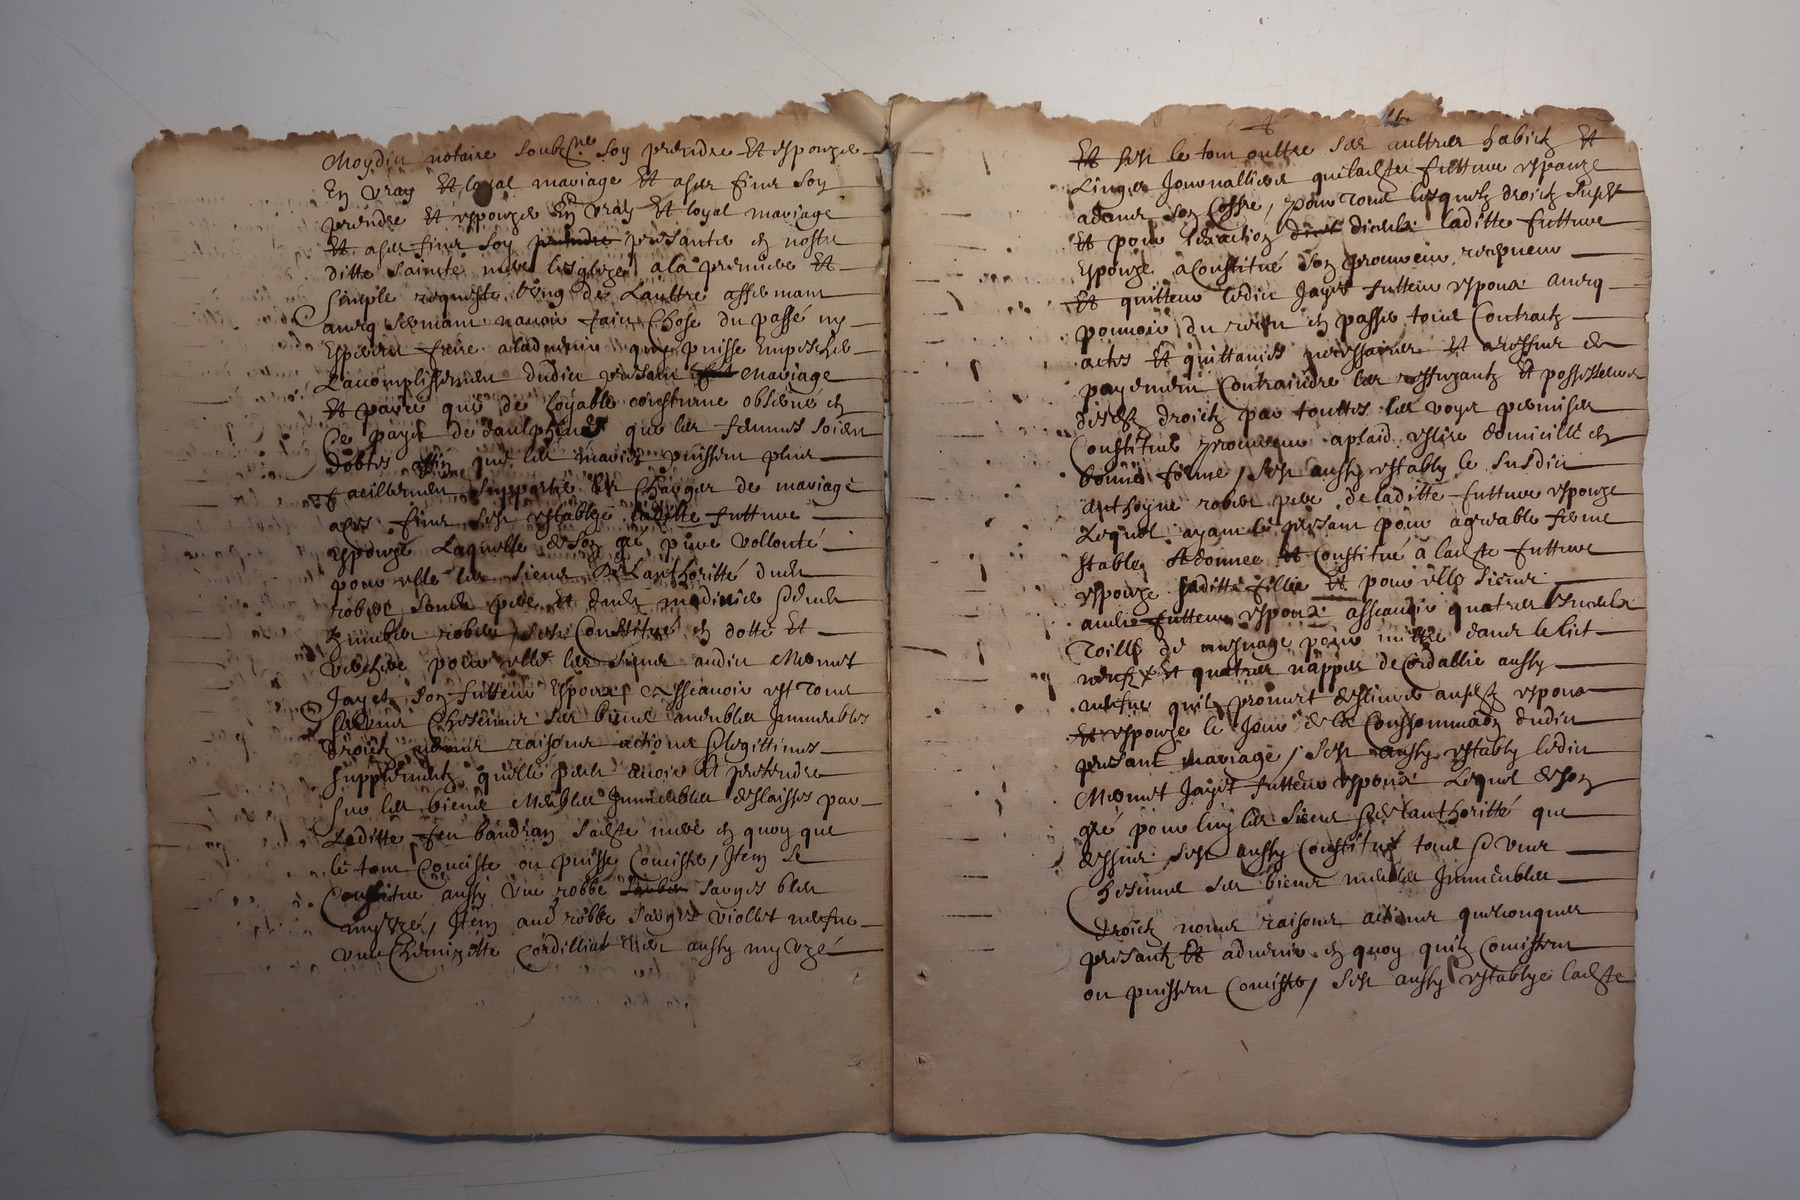 Moydiu notaire soubzne soy prendre Et espouzer
En vray Et loyal mariage Et a ses fins soy
prendre Et espouzer En vray Et loyal mariage
Et a ses fins soy prendre presanter en nostre
ditte saincte mere lesglize a la premiere Et
simple requeste lung de Laultre affirmant
avecq sermant navoir faict chose du passé ny
esperer faire a ladvenir que puisse Empescher
Laccomplissement dudict presant mariage
Et parce que de loyable coustume observé en
Ce pays de daulphiné que les femmes soient
dobtes affin que les maris puissent plus
facillement supporter les charges de mariage
a ces fins sest establye laditte future
espouze Laquelle de son gré pure vollonté
pour elle les siens De Lauthoritté dudict
robert sond pere Et
robert sest Constitué en dotte Et
verchere pour elle les siens audict Mermet
Jayet son futteur Espoux Assçavoir est tous
Et uns Chescungs ses biens meubles Immeubles
droictz noms raisons actions Et legittimes
supplements quelle peut avoir Et pretendre
sur les biens Meubles Immeubles deslaissés par
Laditte feu baudran sadste mere en quoy que
le tout Conciste ou puisse Conciste, Item se
Constitue aussy une robbe sarges bleu
my uzé, Item une robbe sarges viollet neufve
une Chemizette Cordilliat aussy my uzé
Et sest le tout oultre ses aultres habictz Et
Linges Journalliers que ladste future espouze
a dans son coffre, pour tous lesquelz droictz susdst
Et pour lexaction diceulx laditte future
Espouze a Constitué son procureur recepveur
Et quitteur ledict Jayet futteur espoux avecq
pouvoir du receu en passer tous Contractz
actes Et quittances necessaires Et a ces fins de
payement Contraindre les reffuzantz Et possesseurs
desdstz droictz par touttes les voyes permises
Constitue procureur a plaid eslire domicille en
bonne forme, sest aussy estably le susdict
Anthoyne robert pere de laditte future espouze
Lequel ayant le presant pour agreable ferme
stable A donné Et Constitué a ladste future
espouze saditte fillie Et pour elle siens
audict futteur espoux assçavoir quatres linceulx
Toille de mesnage pour mettre dans le lict
neufz Et quatres nappes de Cordallie aussy
neufve quil promet deslivrer ausdstz espoux
Et espouze le Jour de la Conssommaon dudict
presant mariage, sest aussy estably ledict
Mermet Jayet futteur espoux Lequel de son
gré pour luy les siens Et de lauthoritté que
dessus sest aussy Constitué tous Et Uns
Chescuns ses biens meubles Immeubles
droictz noms raisons actions quelconques
presantz Et advenir en quoy quilz Concistent
ou puissent Conciste, sest aussy establye ladste